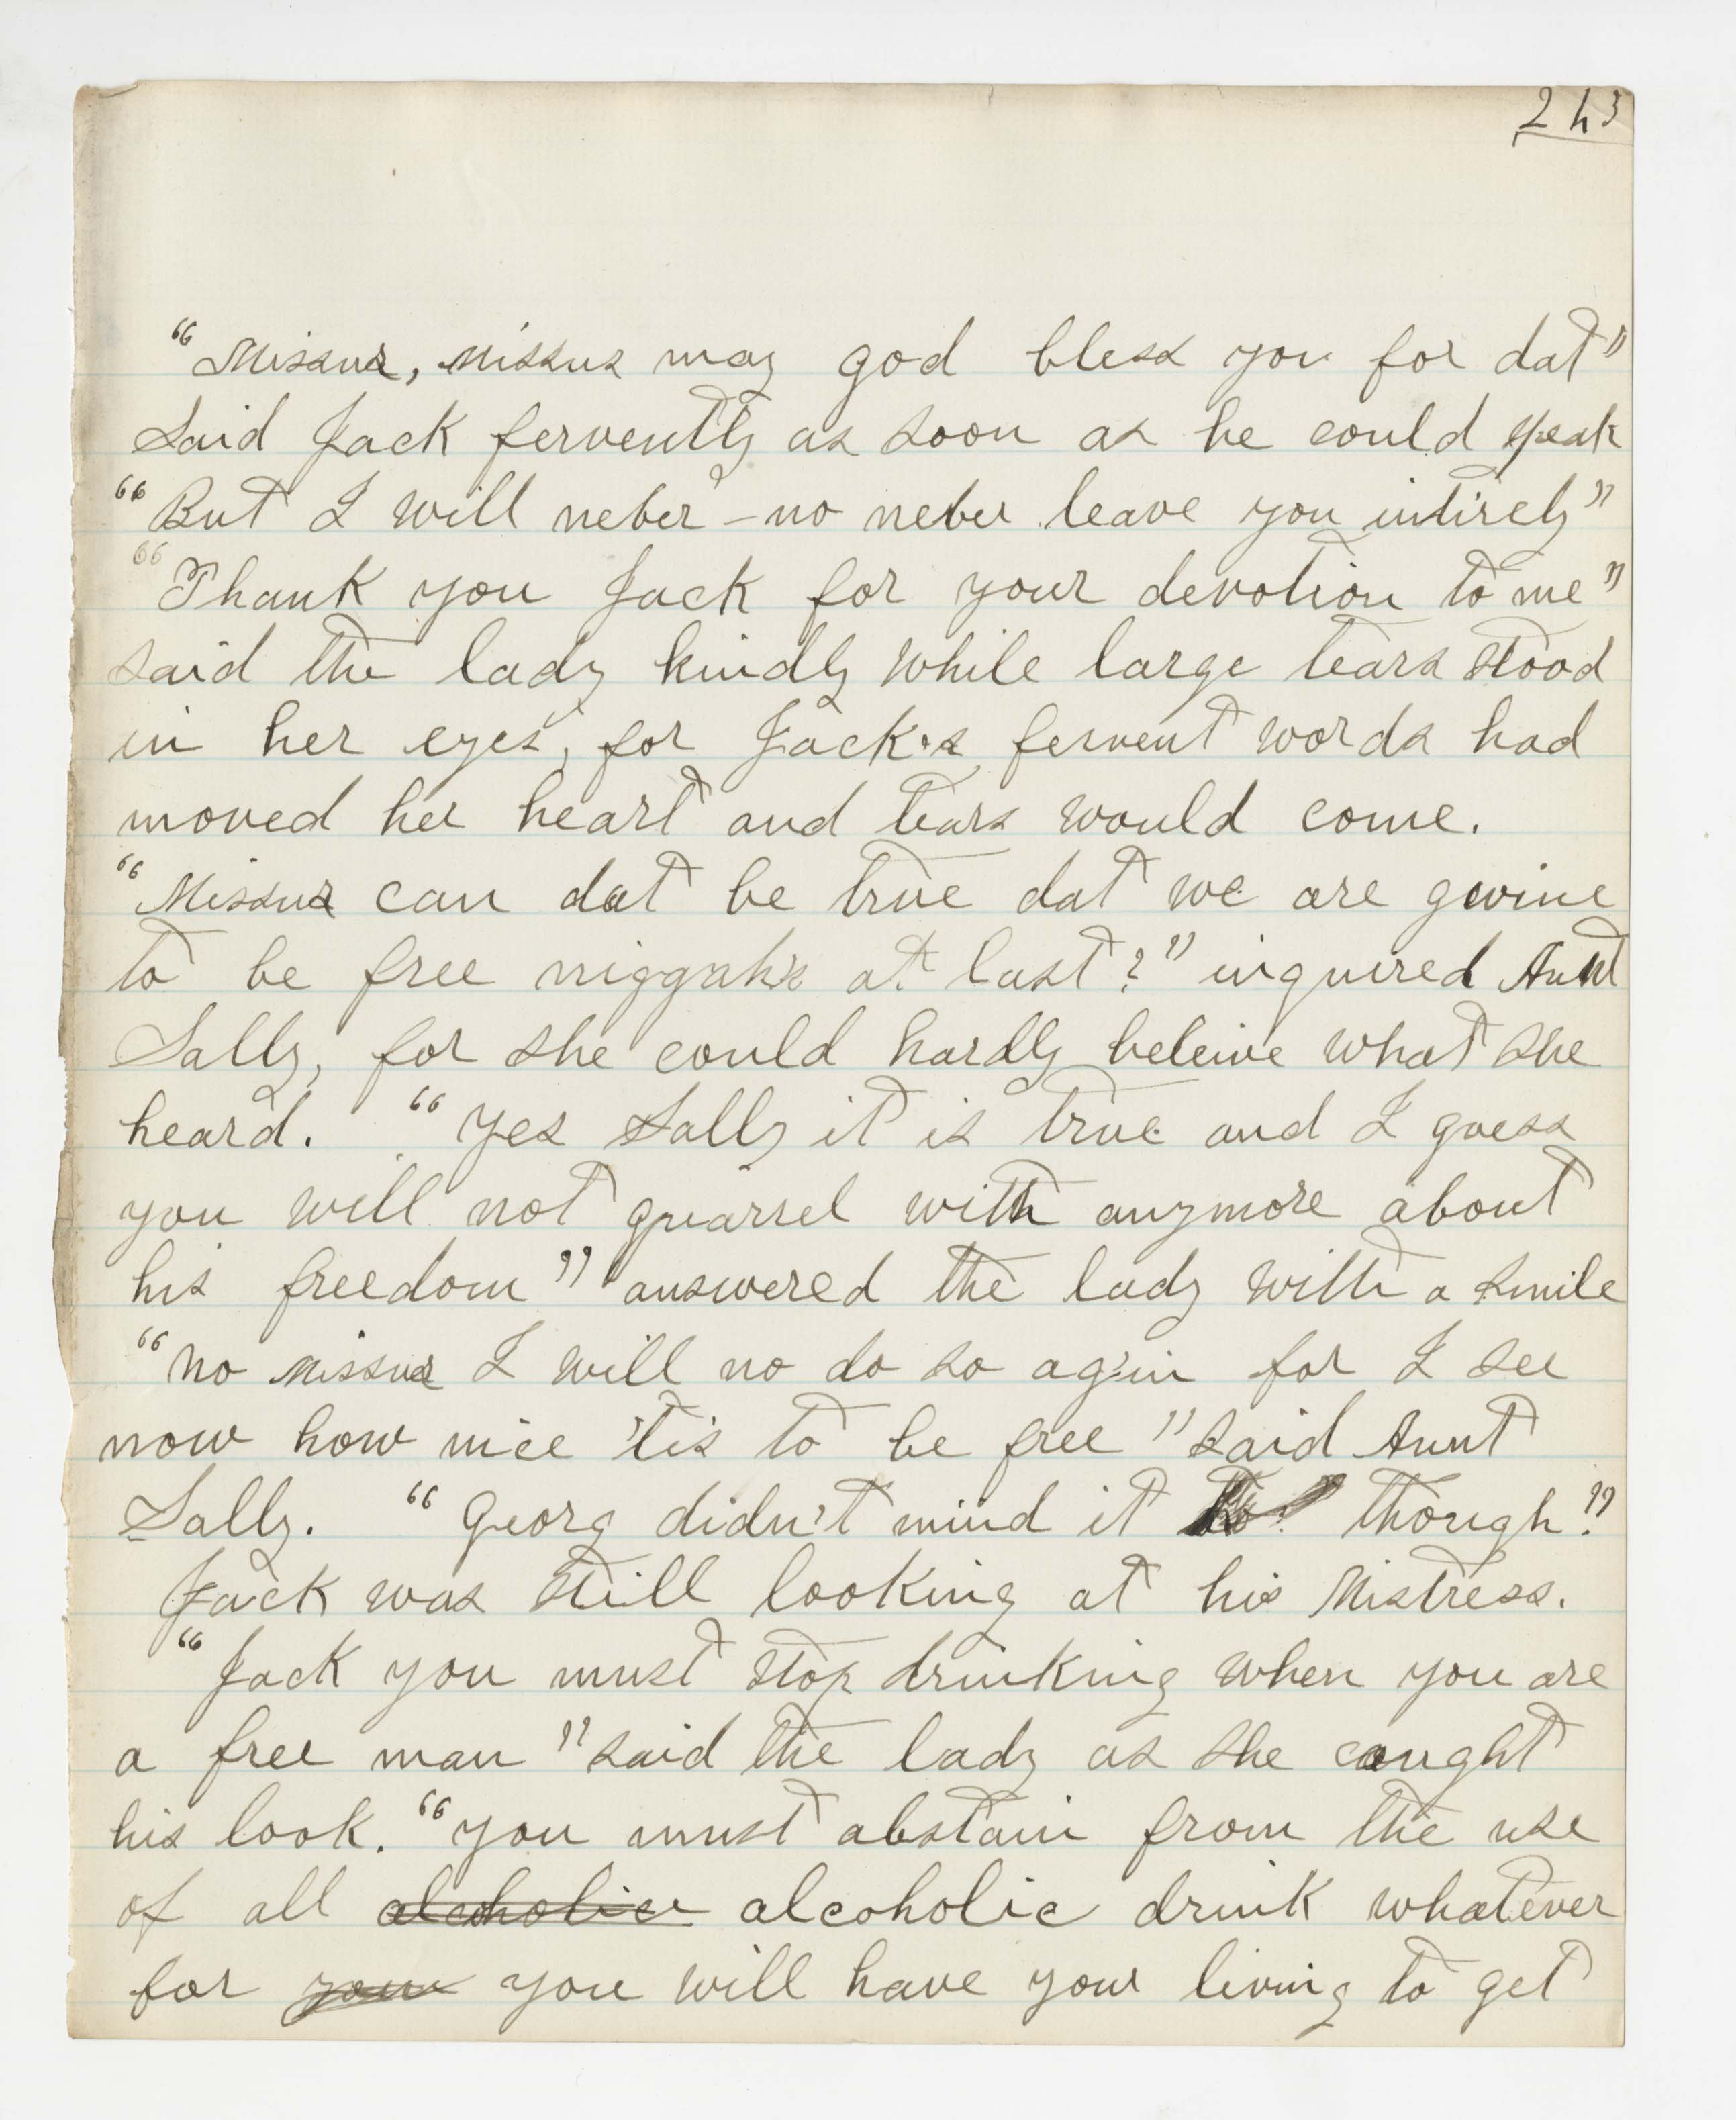 243
"Missus, Missus may god bless you for dat"
said Jack fervently as soon as he could speak
"But I will neber - no neber leave you intirely"
"Thank you Jack for your devotion to me"
said the lady kindly while large tears stood
in her eyes, for Jack's fervent words had
moved her heart and tears would come.
"Missus can dat be true dat we are gwine
to be free niggahs at last?" inquired Aunt
Sally, for she could hardly beleive what she
heard. "Yes Sally it is true and I guess
you will not quarrel with anymore about
his freedom" answered the lady with a smile
"No Missus I will no do so ag'in for I see
now how nice 'tis to be free" said Aunt
Sally. "Georg didn't mind it to though?"
Jack was still looking at his Mistress.
"Jack you must stop drinking when you are
a free man" said the lady as she caught
his look. "You must abstain from the use
of all alcoholics alcoholic drink whatever
for your you will have your living to get